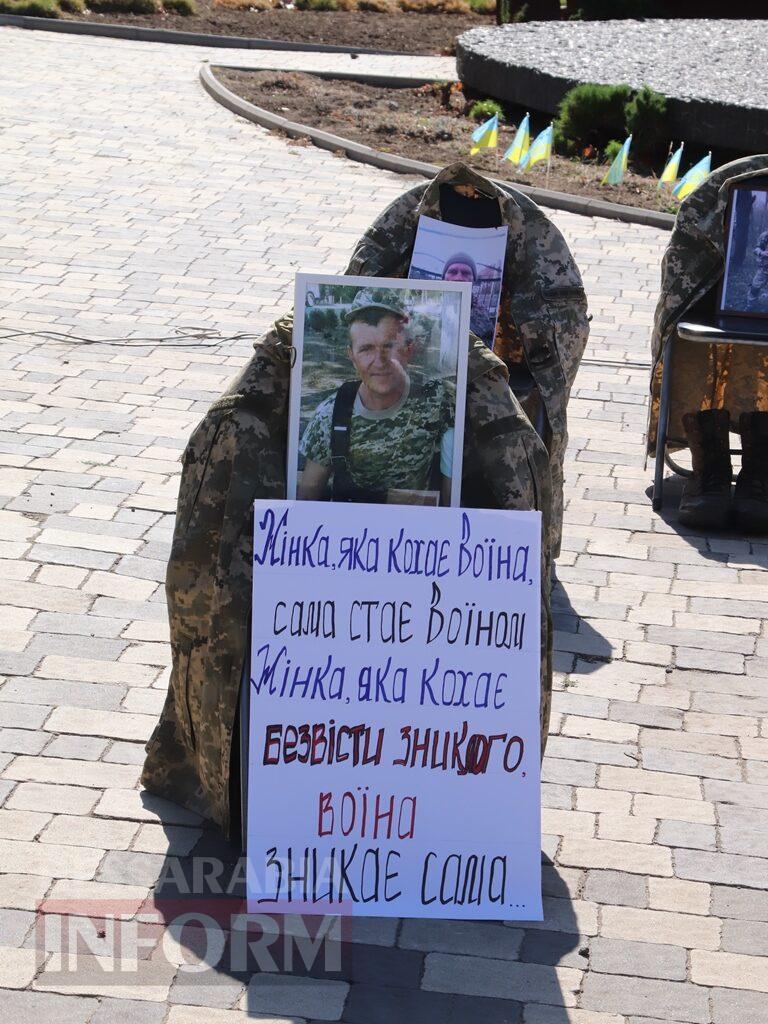 Жінка, яка кохає Воїна,
сама стає Воїном
Жінка, яка кохає
безвісти зниклого,
воїна
зникає сама...
BESSARABIA
INFORM